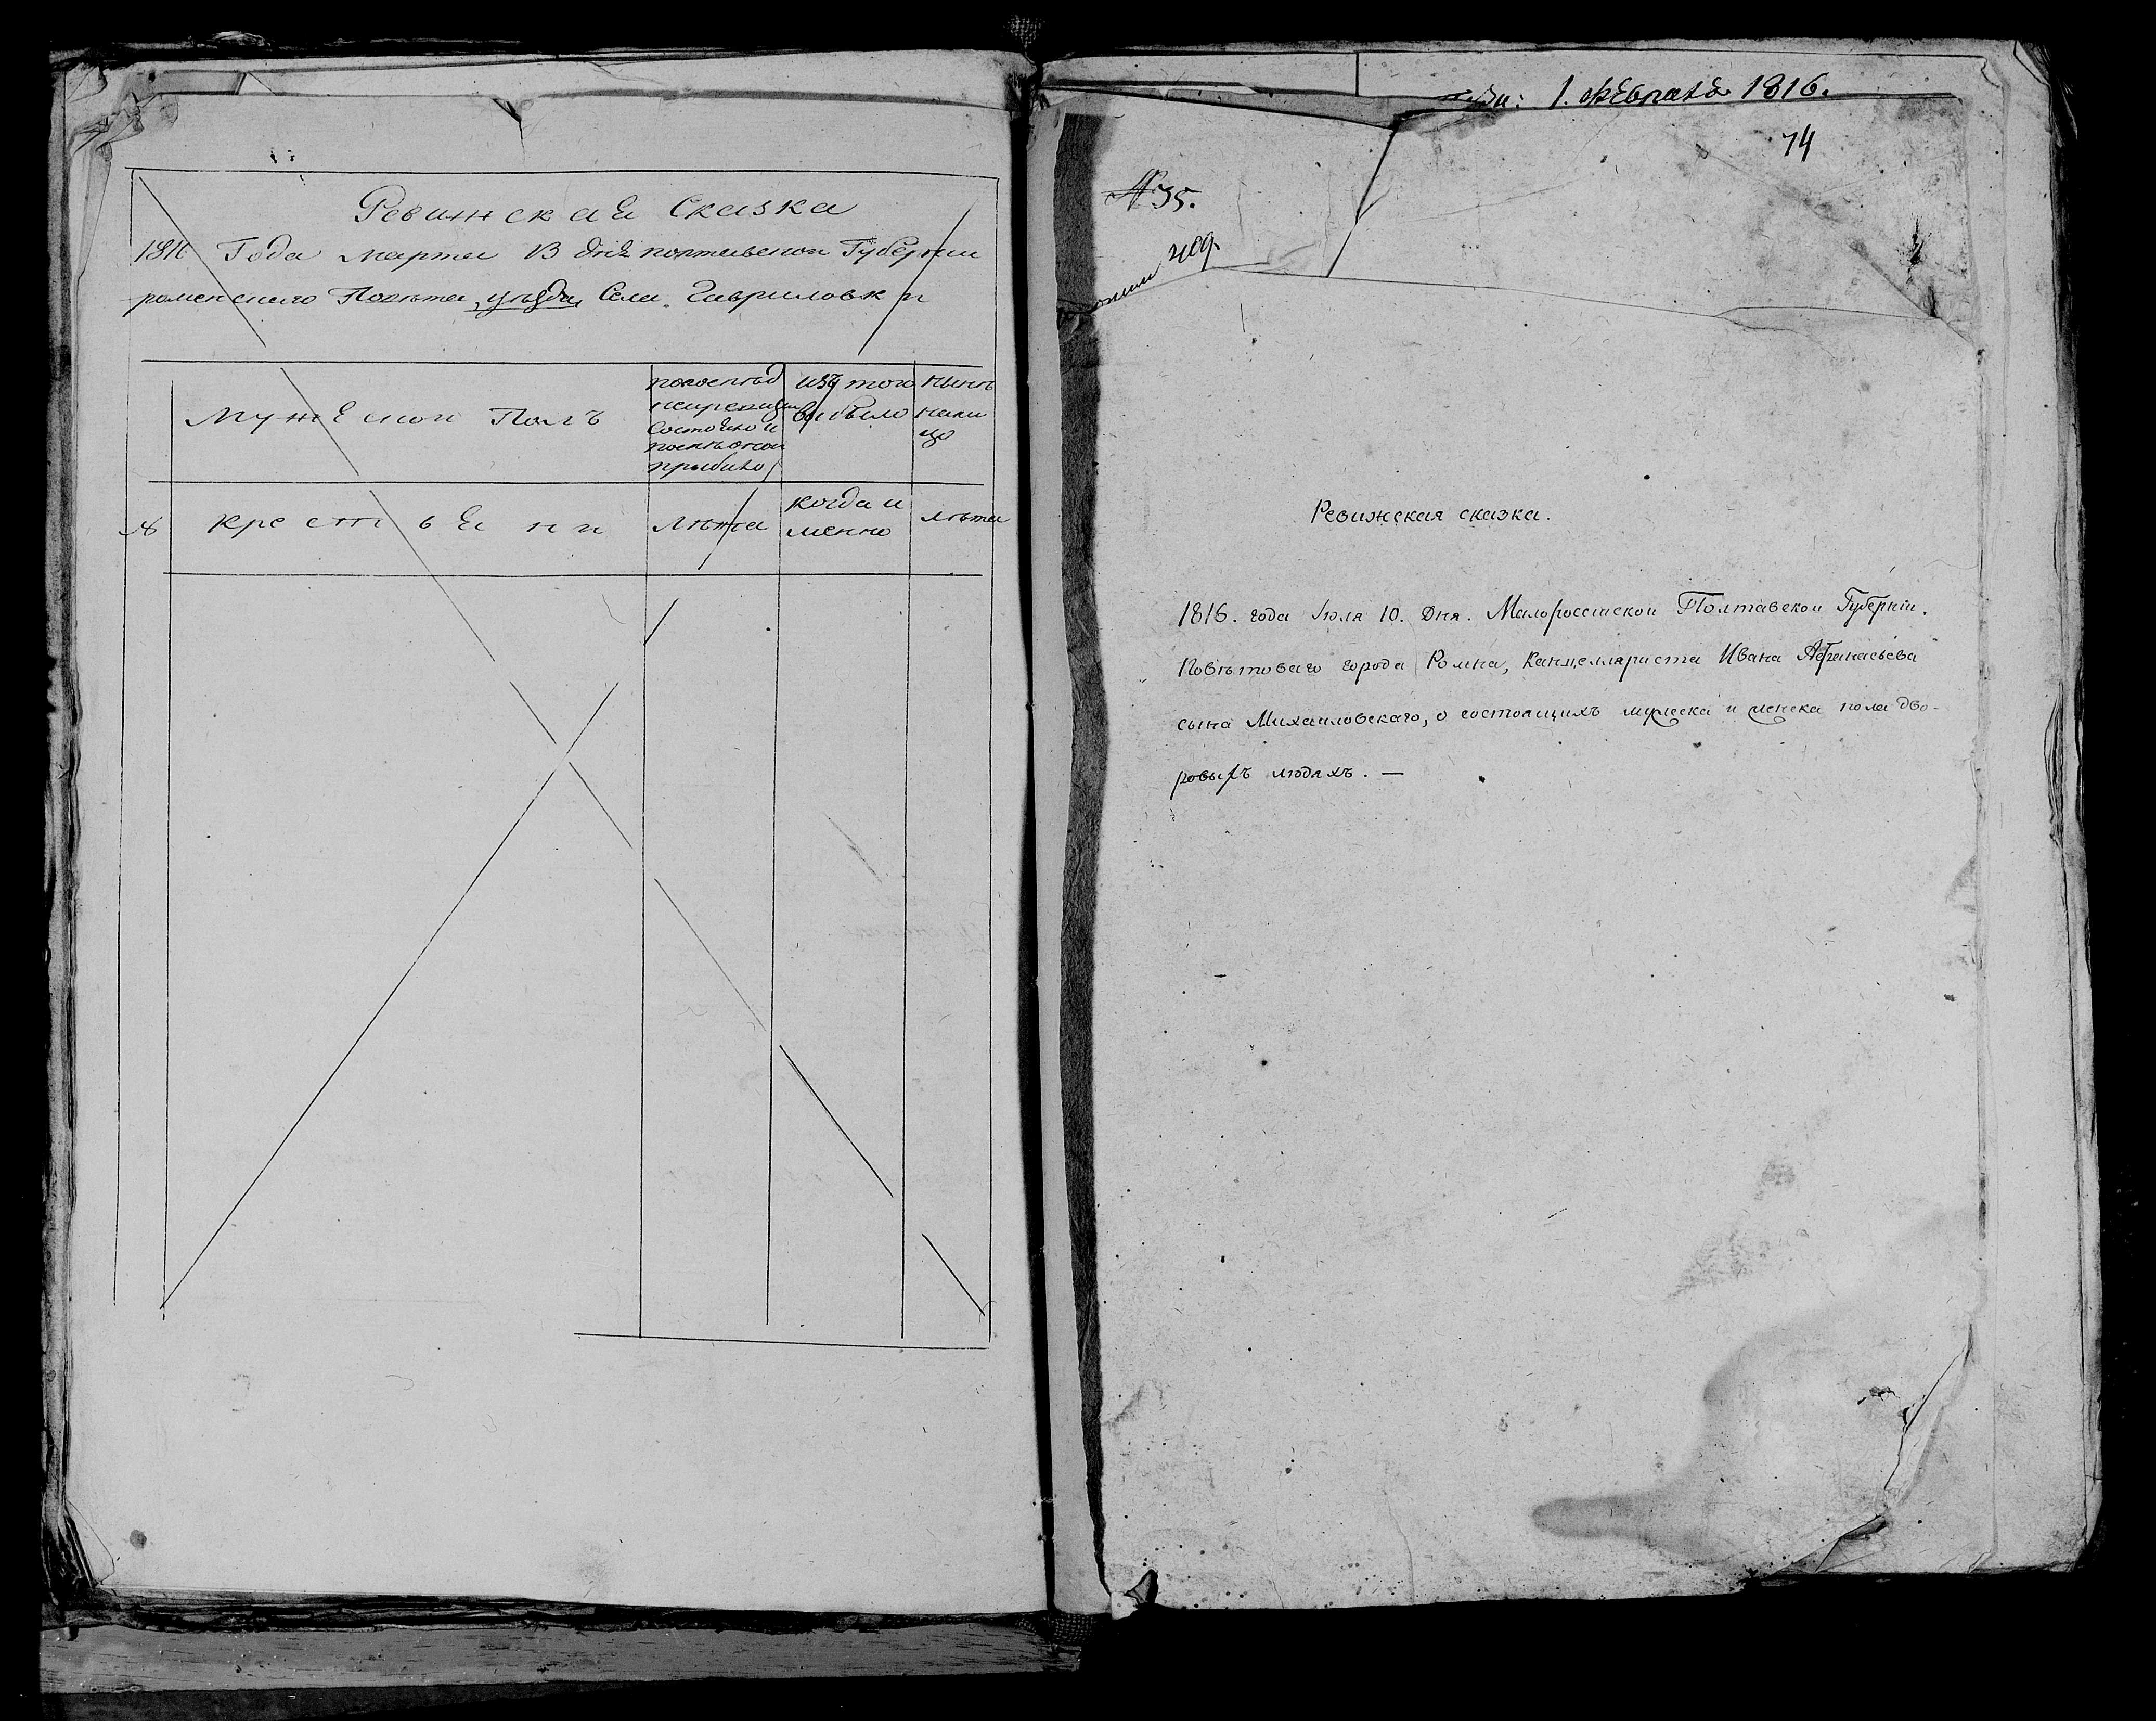 Ревижская Сказка
1816 Года марта 13 дня полтавской Губернии
роменского Повѣта, уѣзда, Села Гавриловки
Мужеской Полъ
изъ того выбыло
нынѣ нали
цо
№
крестьяни
лѣта
когда и
менно
лѣта
1. Февраля 1816.
74
№ 35.
Ревижская сказка.
1816. года Июля 10. Дня. Малороссійской Полтавской Губерніи.
Повѣтоваго города Ромна, Канцеляриста Ивана Афанасьева
сына Михайловскаго, о состоящихъ мужеска и женска пола дво-
ровыхъ людяхъ. —